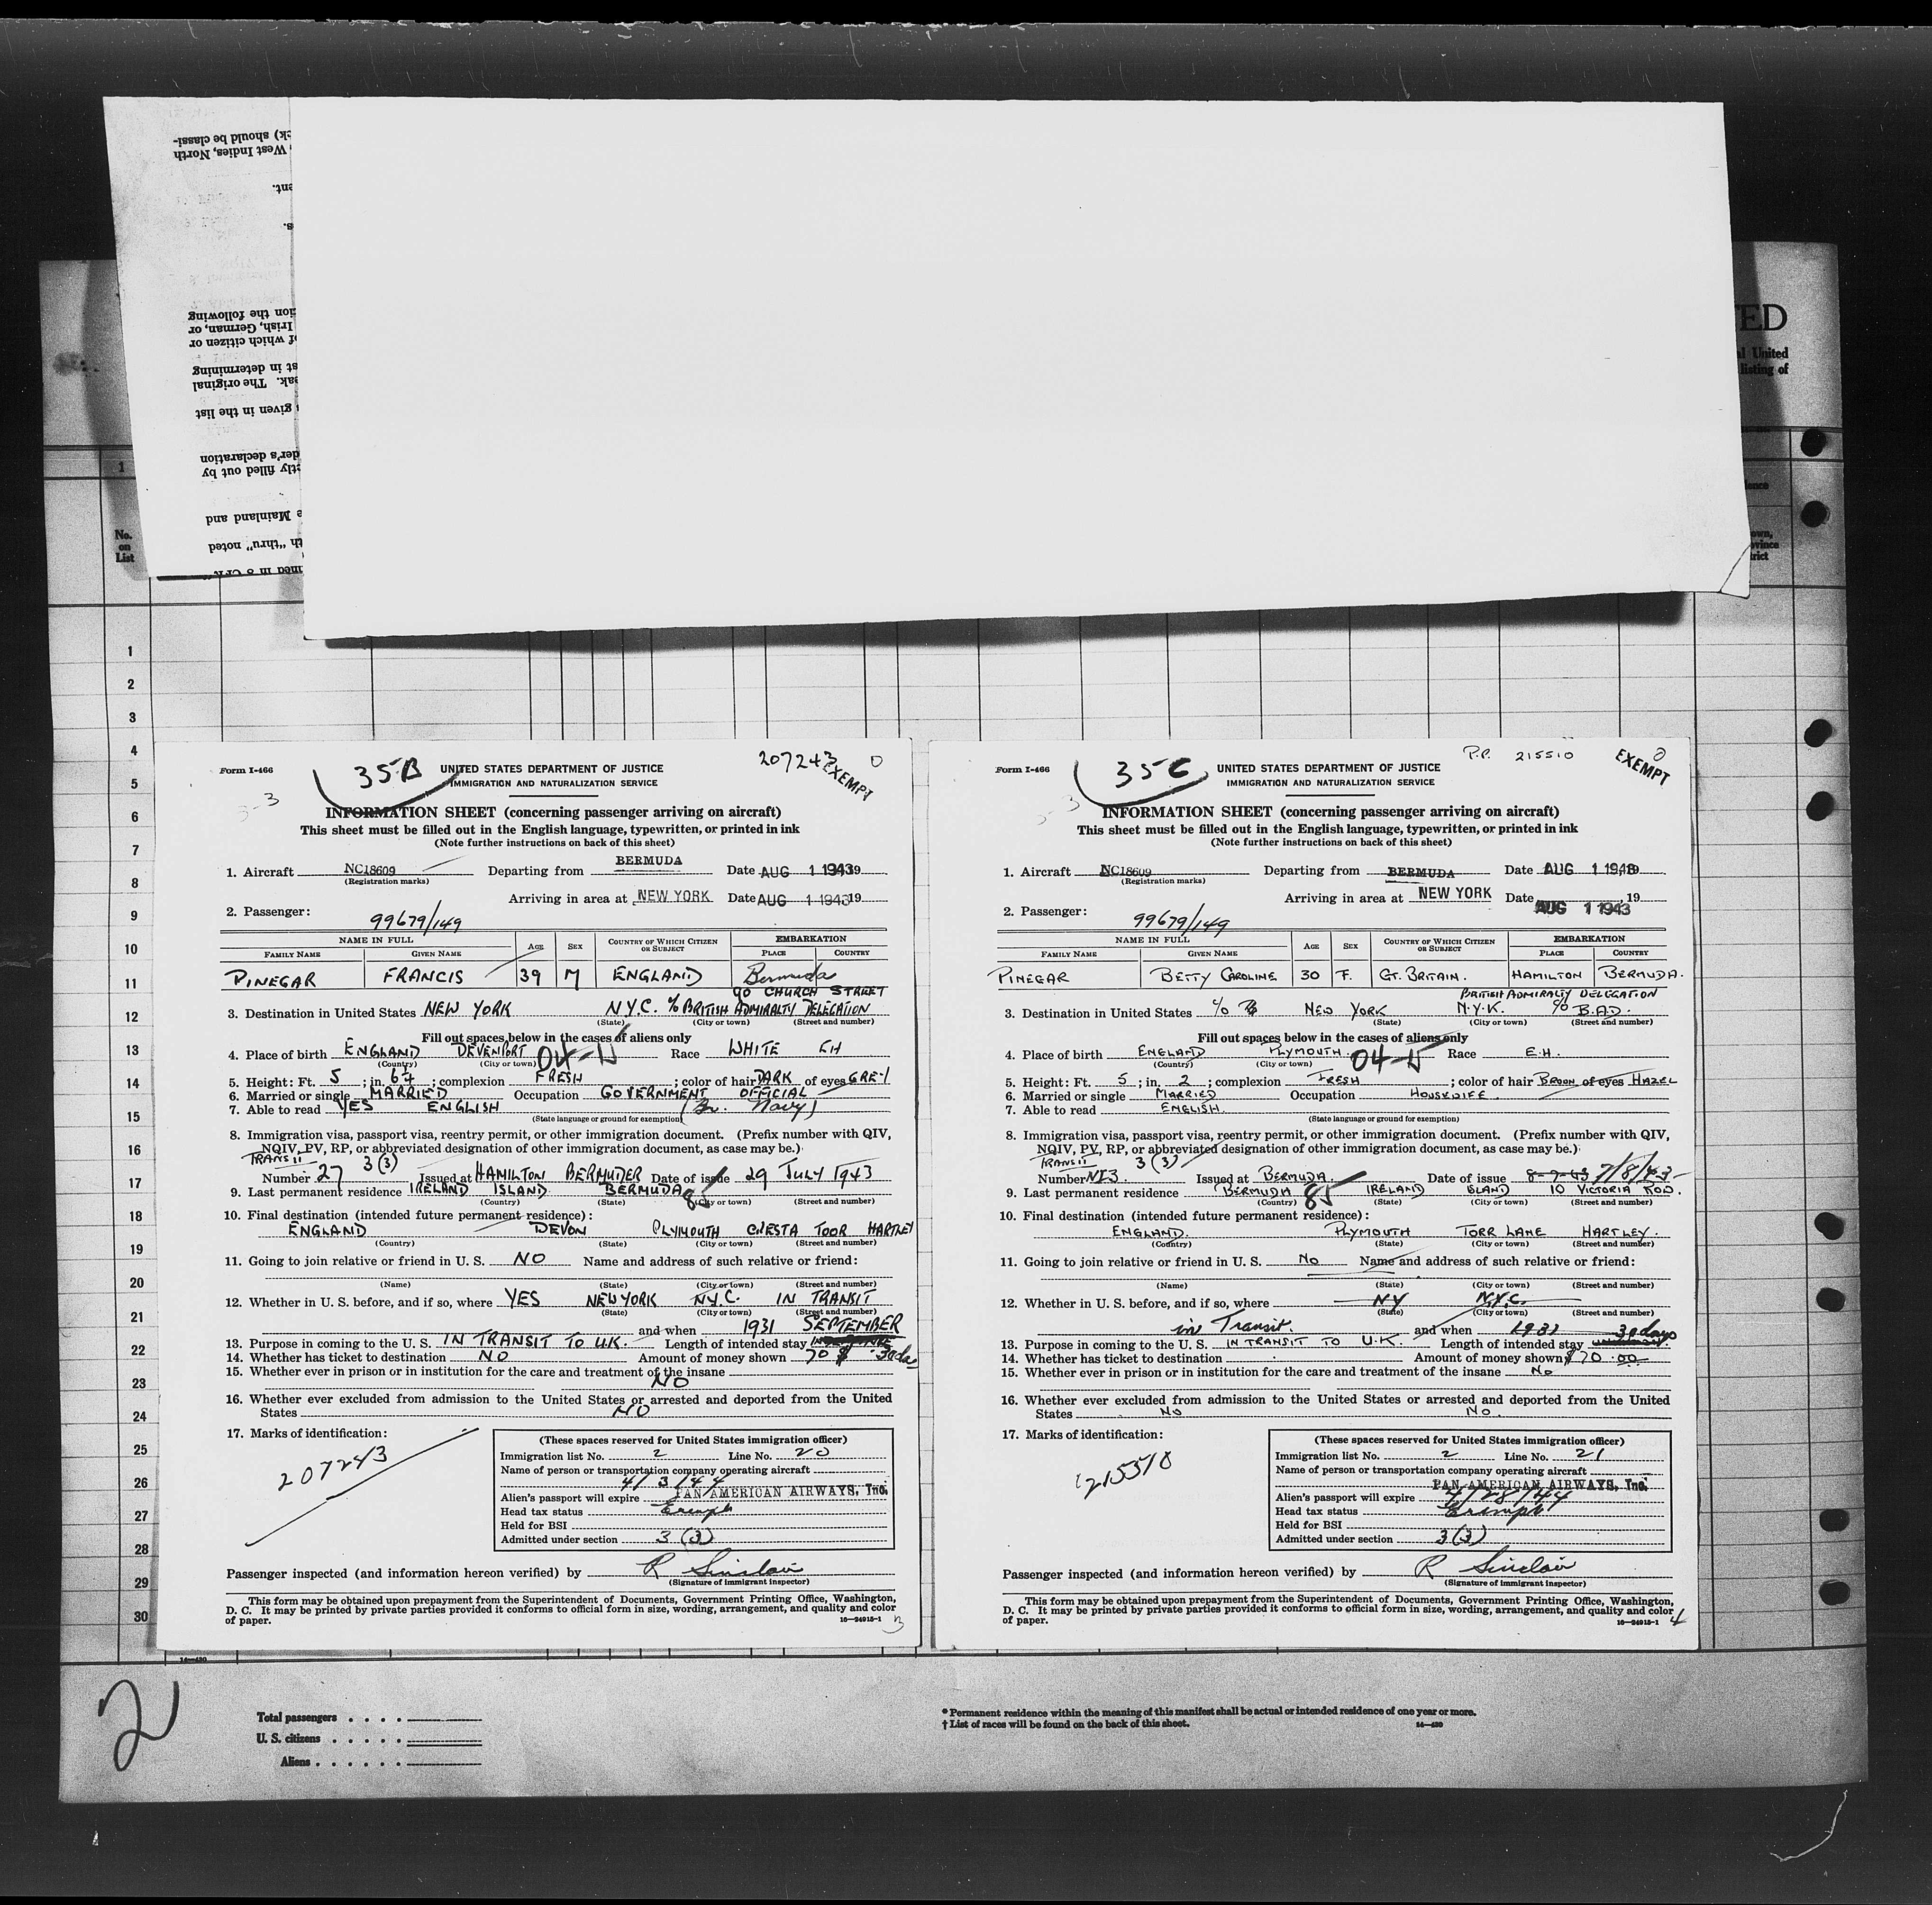 ck) should be classi-
, West Indies, North
ent.
s.
tion the following
Irish, German, or
of which citizen or
st in determining
eak. The original
given in the list
der's declaration
tly filled out by
e Mainland and
th "thru" noted
TED
al United
listing of
1
No.
on
List
dence
own,
ovince
trict
1
2
3
4
5
6
7
8
9
10
11
12
13
14
15
16
17
18
19
20
21
22
23
24
25
26
27
28
29
30
Form I-466
35B
207243
EXEMPT
0
3-3
UNITED STATES DEPARTMENT OF JUSTICE
IMMIGRATION AND NATURALIZATION SERVICE
INFORMATION SHEET (concerning passenger arriving on aircraft)
This sheet must be filled out in the English language, typewritten, or printed in ink
(Note further instructions on back of this sheet)
1. Aircraft NC18609 Departing from BERMUDA Date AUG 1 1943 19
(Registration marks)
Arriving in area at NEW YORK Date AUG 1 1943 19
2. Passenger: 99679/149
NAME IN FULL AGE SEX COUNTRY OF WHICH CITIZEN OR SUBJECT EMBARKATION
FAMILY NAME GIVEN NAME PLACE COUNTRY
PINEGAR FRANCIS 39 M ENGLAND Bermuda
90 CHURCH STREET
3. Destination in United States NEW YORK N.Y.C. % BRITISH ADMIRALTY DELEGATION
(State) (City or town) (Street and number)
Fill out spaces below in the cases of aliens only
4. Place of birth ENGLAND DEVENPORT Race WHITE EH
(Country) (City or town)
5. Height: Ft. 5 ; in. 6¾ ; complexion FRESH ; color of hair DARK of eyes GREY
6. Married or single MARRIED Occupation GOVERNMENT OFFICIAL
7. Able to read YES ENGLISH (Br. Navy)
(State language or ground for exemption)
8. Immigration visa, passport visa, reentry permit, or other immigration document. (Prefix number with QIV,
NQIV, PV, RP, or abbreviated designation of other immigration document, as case may be.)
TRANSIT 3(3)
Number 27 Issued at HAMILTON BERMUDER Date of issue 29 JULY 1943
9. Last permanent residence IRELAND ISLAND BERMUDA 85
(Country) (State) (City or town) (Street and number)
10. Final destination (intended future permanent residence):
ENGLAND DEVON PLYMOUTH CHESTA TOOR HARTLEY
(Country) (State) (City or town) (Street and number)
11. Going to join relative or friend in U. S. NO Name and address of such relative or friend:
(Name) (State) (City or town) (Street and number)
12. Whether in U. S. before, and if so, where YES NEW YORK N.Y.C. IN TRANSIT
(State) (City or town) (Street and number)
and when 1931 SEPTEMBER
13. Purpose in coming to the U. S. IN TRANSIT TO U.K. Length of intended stay
14. Whether has ticket to destination NO Amount of money shown 70 $ 30 da
15. Whether ever in prison or in institution for the care and treatment of the insane
NO
16. Whether ever excluded from admission to the United States or arrested and deported from the United
States NO
17. Marks of identification:
207243
(These spaces reserved for United States immigration officer)
Immigration list No. 2 Line No. 20
Name of person or transportation company operating aircraft
4/3/44 PAN AMERICAN AIRWAYS, Inc.
Alien's passport will expire
Head tax status Exempt
Held for BSI
Admitted under section 3 (3)
Passenger inspected (and information hereon verified) by R Sinclair
(Signature of immigrant inspector)
This form may be obtained upon prepayment from the Superintendent of Documents, Government Printing Office, Washington,
D. C. It may be printed by private parties provided it conforms to official form in size, wording, arrangement, and quality and color
of paper. 16—24915-1 3
Form I-466
35C
P.P. 215510
EXEMPT
0
UNITED STATES DEPARTMENT OF JUSTICE
IMMIGRATION AND NATURALIZATION SERVICE
INFORMATION SHEET (concerning passenger arriving on aircraft)
This sheet must be filled out in the English language, typewritten, or printed in ink
(Note further instructions on back of this sheet)
1. Aircraft NC18609 Departing from BERMUDA Date AUG 1 1943 19
(Registration marks)
Arriving in area at NEW YORK Date AUG 1 1943 , 19
2. Passenger: 99679/149
NAME IN FULL AGE SEX COUNTRY OF WHICH CITIZEN OR SUBJECT EMBARKATION
FAMILY NAME GIVEN NAME PLACE COUNTRY
PINEGAR BETTY CAROLINE 30 F. GT. BRITAIN. HAMILTON BERMUDA.
BRITISH ADMIRALTY DELEGATION
3. Destination in United States NEW YORK N.Y.K. % B.A.D.
(State) (City or town) (Street and number)
Fill out spaces below in the cases of aliens only
4. Place of birth ENGLAND PLYMOUTH. Race E.H.
(Country) (City or town)
5. Height: Ft. 5 ; in. 2 ; complexion FRESH ; color of hair BROWN of eyes HAZEL
6. Married or single MARRIED Occupation HOUSEWIFE.
7. Able to read ENGLISH.
(State language or ground for exemption)
8. Immigration visa, passport visa, reentry permit, or other immigration document. (Prefix number with QIV,
NQIV, PV, RP, or abbreviated designation of other immigration document, as case may be.)
TRANSIT 3(3)
Number Issued at BERMUDA. Date of issue 7/8/43
9. Last permanent residence BERMUDA 85 IRELAND ISLAND 10 VICTORIA ROW.
(Country) (State) (City or town) (Street and number)
10. Final destination (intended future permanent residence):
ENGLAND. PLYMOUTH TORR LANE HARTLEY.
(Country) (State) (City or town) (Street and number)
11. Going to join relative or friend in U. S. NO Name and address of such relative or friend:
(Name) (State) (City or town) (Street and number)
12. Whether in U. S. before, and if so, where NY N.Y.C.
(State) (City or town) (Street and number)
in Transit. and when 1931 30 days
13. Purpose in coming to the U. S. IN TRANSIT TO U.K. Length of intended stay
14. Whether has ticket to destination Amount of money shown $70.00
15. Whether ever in prison or in institution for the care and treatment of the insane No
16. Whether ever excluded from admission to the United States or arrested and deported from the United
States No No.
17. Marks of identification:
215510
(These spaces reserved for United States immigration officer)
Immigration list No. 2 Line No. 21
Name of person or transportation company operating aircraft
PAN AMERICAN AIRWAYS, Inc.
Alien's passport will expire 4/28/44
Head tax status Exempt
Held for BSI
Admitted under section 3(3)
Passenger inspected (and information hereon verified) by R Sinclair
(Signature of immigrant inspector)
This form may be obtained upon prepayment from the Superintendent of Documents, Government Printing Office, Washington,
D. C. It may be printed by private parties provided it conforms to official form in size, wording, arrangement, and quality and color
of paper. 16—24915-1 4
2
Total passengers . . . .
U. S. citizens . . . . .
Aliens . . . . . .
* Permanent residence within the meaning of this manifest shall be actual or intended residence of one year or more.
† List of races will be found on the back of this sheet. 14—430